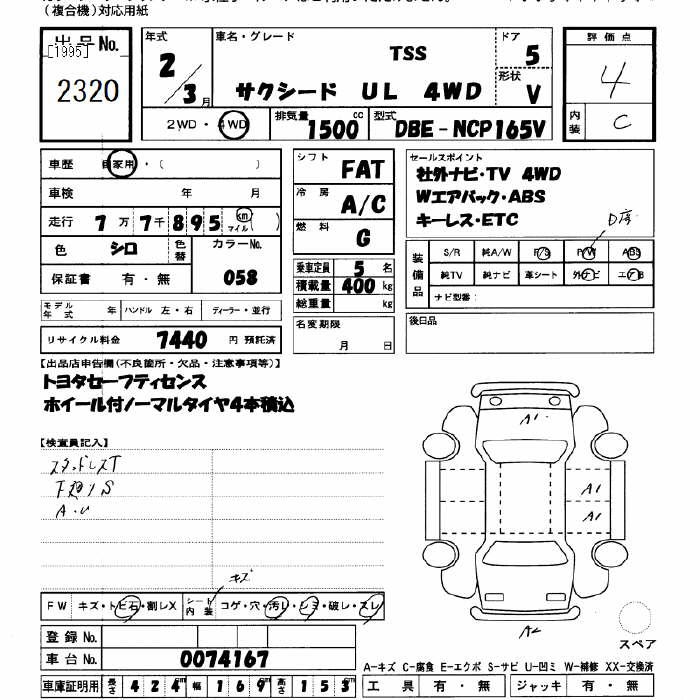 (複合機)対応用紙
出品No.
[1995]
2320
年式
2/3月
車名・グレード
TSS
サクシード UL 4WD
ドア
5
形状
V
評価点
4
内装
C
2WD・4WD
排気量
1500cc
型式
DBE-NCP165V
車歴 自家用・( )
車検 年 月
走行 7万7千895 km マイル( )
色 シロ 色替 カラーNo.
058
保証書 有・無
モデル年式 年 ハンドル 左・右 ディーラー・並行
リサイクル料金 7440 円 預託済
シフト
FAT
冷房
A/C
燃料
G
乗車定員 5 名
積載量 400 kg
総重量 kg
名変期限
月 日
セールスポイント
社外ナビ・TV 4WD
Wエアバック・ABS
キーレス・ETC
D席
装備品
S/R 純A/W P/S P/W ABS
純TV 純ナビ 革シート 外ナビ エアB
ナビ型番:
後日品
【出品店申告欄(不良箇所・欠品・注意事項等)】
トヨタセーフティセンス
ホイール付ノーマルタイヤ4本積込
【検査員記入】
スタッドレスT
A・U
A1
A1
A1
A2
スペア
キズ
FW キズ・トビ石・割レX シート内装 コゲ・穴・汚レ・シミ・破レ・スレ
登録No.
車台No. 0074167
車庫証明用 長さ 424cm 幅 169cm 高さ 153cm
A-キズ C-腐食 E-エクボ S-サビ U-凹ミ W-補修 XX-交換済
工具 有・無 ジャッキ 有・無